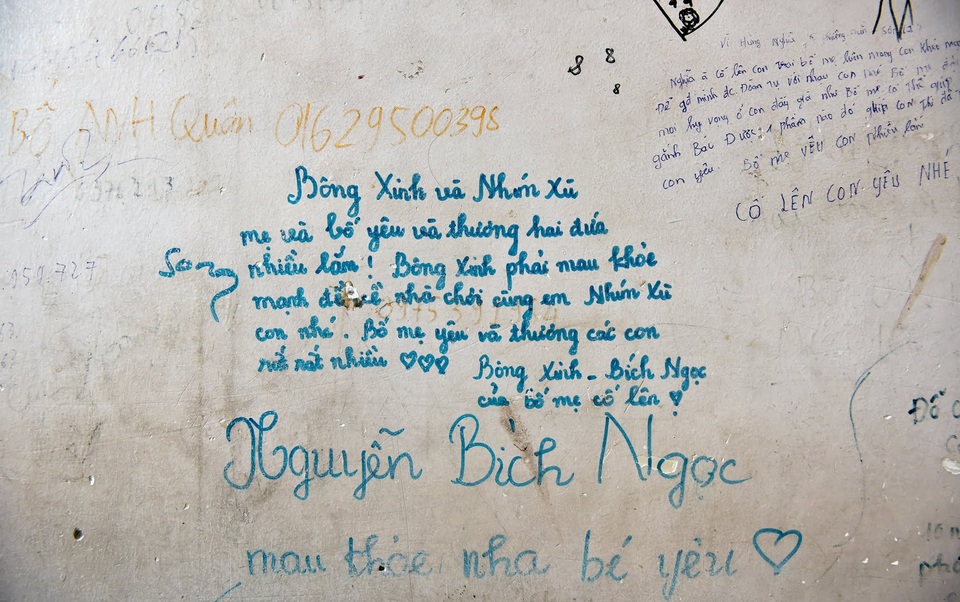 8 8
8 8
BỐ ANH Quân 01629500398
Nghĩa à cố lên con trai bố mẹ luôn mong con khỏe mạnh
Để gđ mình đc Đoàn tụ với nhau con nhé Bố mẹ đặt
mọi hy vọng ở con đấy giá như Bố mẹ có thể giúp
gánh Bác Được 1 phần nào đó giúp con thì đỡ
con yêu. Bố mẹ YÊU CON nhiều lắm
CỐ LÊN CON YÊU NHÉ
Bông Xinh và Nhím Xù
mẹ và bố yêu và thương hai đứa
nhiều lắm! Bông Xinh phải mau khỏe
mạnh để về nhà chơi cùng em Nhím Xù
con nhé. Bố mẹ yêu và thương các con
rất rất nhiều ♡♡♡
Bông Xinh - Bích Ngọc
của bố mẹ cố lên ♡
959.727
Nguyễn Bích Ngọc
mau khỏe nha bé yêu ♡
ĐỖ